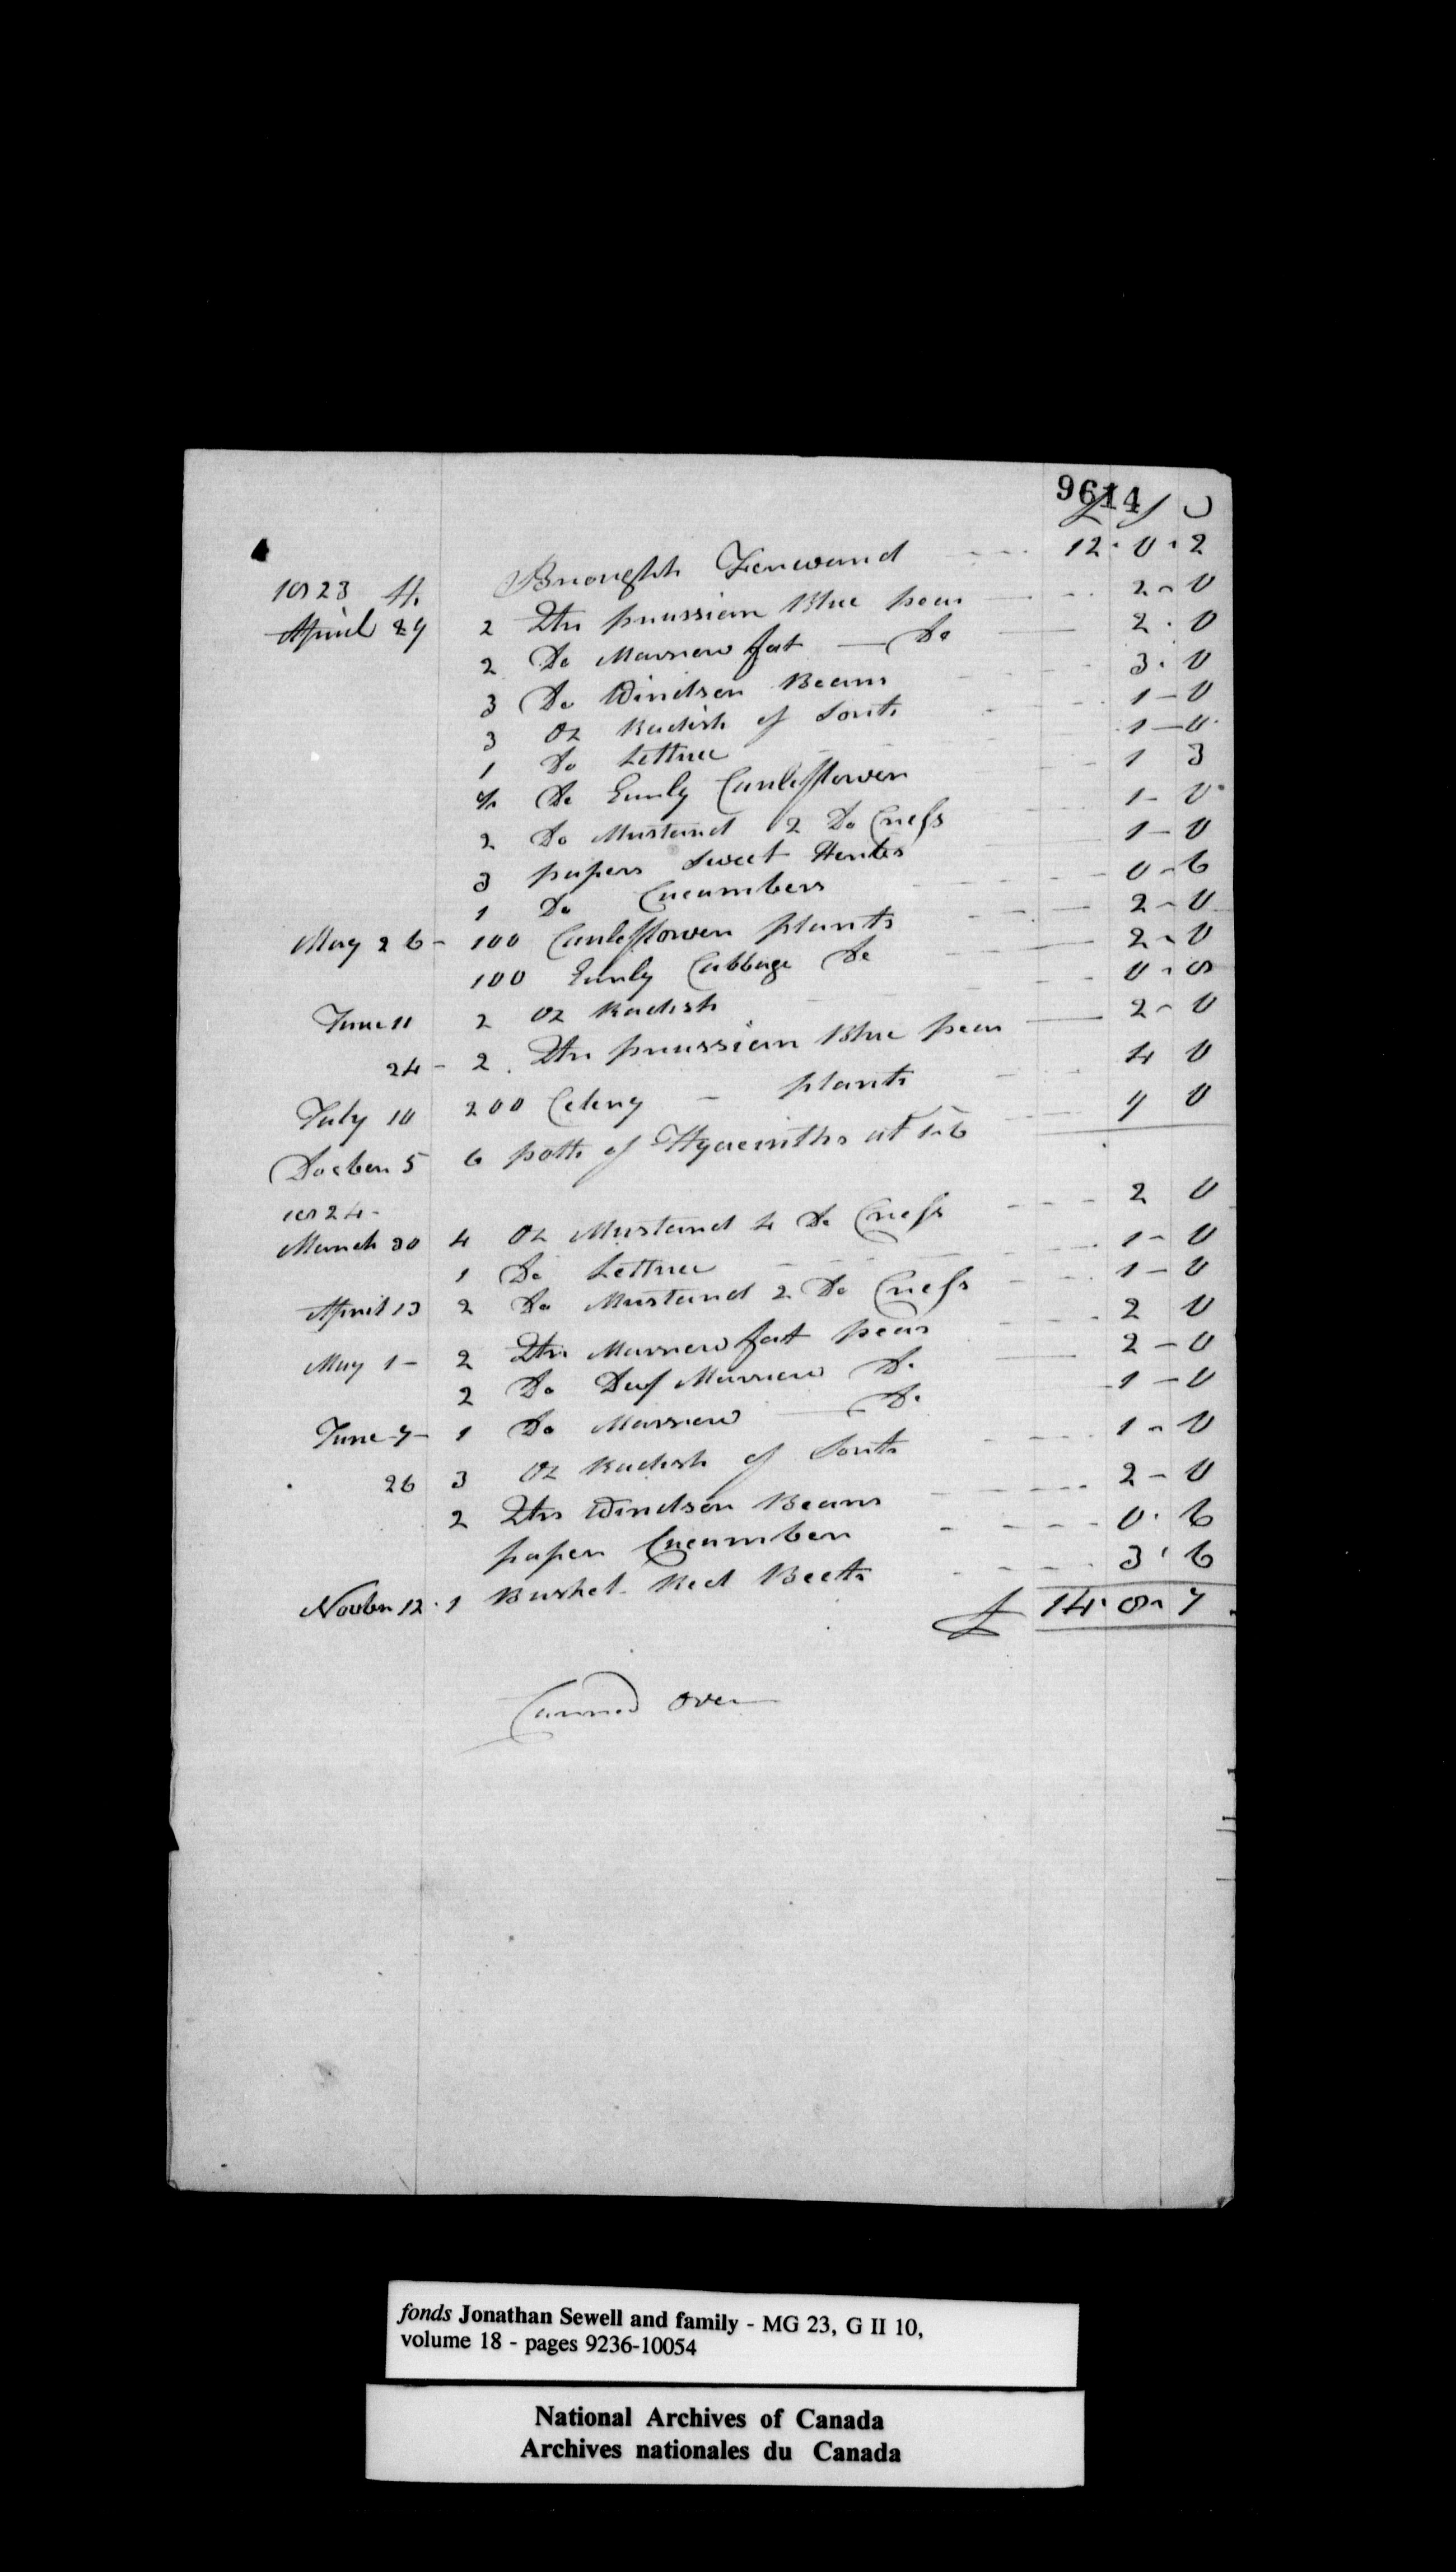 9614
L S D
Brought Forward 12 . 0 . 2
1823
April 29 2 Qtr prussian Blue peas 2 - 0
2 Do Marrow fat Do 2 . 0
3 Do Windsor Beans 3 . 0
3 Oz Radish of Sorts 1 - 0
1 Do Lettuce 1 - 0
Do Early Cauleflower 1 3
2 Do Mustard 2 Do Cress 1 - 0
3 papers Sweet Herbs 1 - 0
1 Do Cucumbers 0 - 6
May 26 - 100 Cauleflower plants 2 - 0
100 Early Cabbage Do 2 - 0
June 11 2 Oz Radish 0 - 8
24 - 2 Qtr prussian Blue peas 2 - 0
July 10 200 Celery - plants 4 0
Decber 5 6 potts of Hyacinths at 1-6 9 0
1824 -
March 30 4 Oz Mustard 4 Do Cress 2 0
1 Do Lettuce 1 - 0
April 13 2 Do Mustard 2 Do Cress 1 - 0
May 1 - 2 Qtr Marrow fat peas 2 0
2 Do Dwf Marrow Do 2 - 0
June 7 - 1 Do Marrow Do 1 - 0
26 3 Oz Radish of Sorts 1 - 0
2 Qtr Windsor Beans 2 - 0
paper Cucumber 0 . 6
Novbr 12 . 1 Bushel Red Beets 3 . 6
£ 14 . 8 - 7
Carried over
fonds Jonathan Sewell and family - MG 23, G II 10,
volume 18 - pages 9236-10054
National Archives of Canada
Archives nationales du Canada